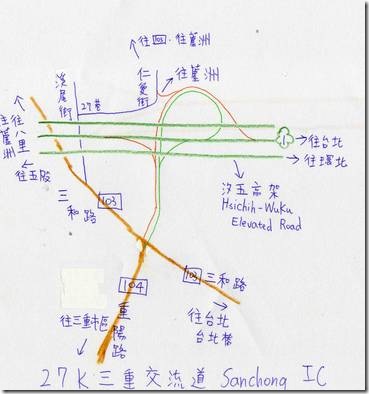 往回、往蘆洲
溪尾街
27巷
仁愛街
往蘆洲
往八里
往蘆洲
1
往台北
往環北
往五股
汐五高架
Hsichih-Wuku
Elevated Road
三和路
103
103
三和路
104
重陽路
往台北
台北橋
往三重市區
27K三重交流道 Sanchong IC